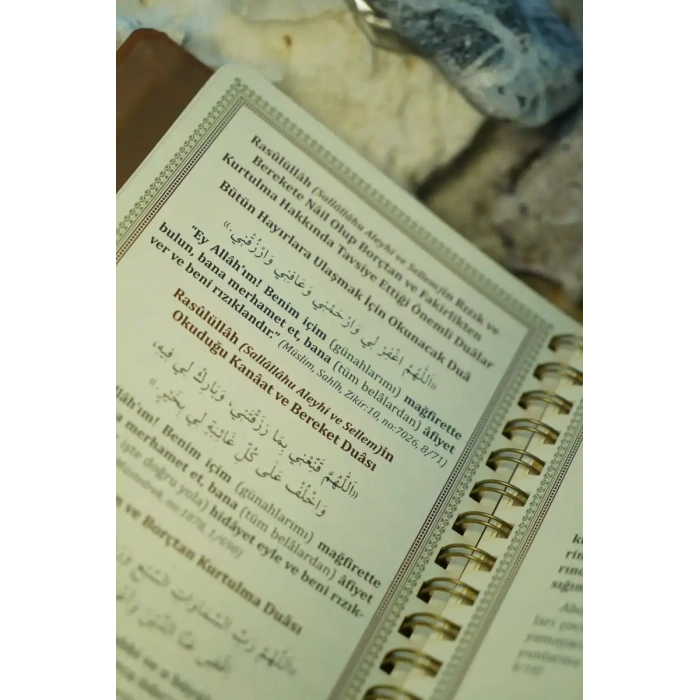 Rasûlüllâh (Sallâllâhu Aleyhi ve Sellem)in Rızık ve
Berekete Nâil Olup Borçtan ve Fakirlikten
Kurtulma Hakkında Tavsiye Ettiği Önemli Duâlar
Bütün Hayırlara Ulaşmak İçin Okunacak Duâ
«اَللّٰهُمَّ اغْفِرْ لِي وَارْحَمْنِي وَعَافِنِي وَارْزُقْنِي.»
"Ey Allâh'ım! Benim için (günahlarımı) mağfirette
bulun, bana merhamet et, bana (tüm belâlardan) âfiyet
ver ve beni rızıklandır." (Müslim, Sahîh, Zikir:10, no:7026, 8/71)
Rasûlüllâh (Sallâllâhu Aleyhi ve Sellem)in
Okuduğu Kanâat ve Bereket Duâsı
«اَللّٰهُمَّ قَنِّعْنِي بِمَا رَزَقْتَنِي، وَبَارِكْ لِي فِيهِ،
وَاخْلُفْ عَلَى كُلِّ غَائِبَةٍ لِي بِخَيْرٍ.»
llâh'ım! Benim için (günahlarımı) mağfirette
a merhamet et, bana (tüm belâlardan) âfiyet
işte doğru yola) hidâyet eyle ve beni rızık-
no:1878, 1/690)
ve Borçtan Kurtulma Duâsı
«اَللّٰهُمَّ رَبَّ السَّمَاوَاتِ السَّبْعِ